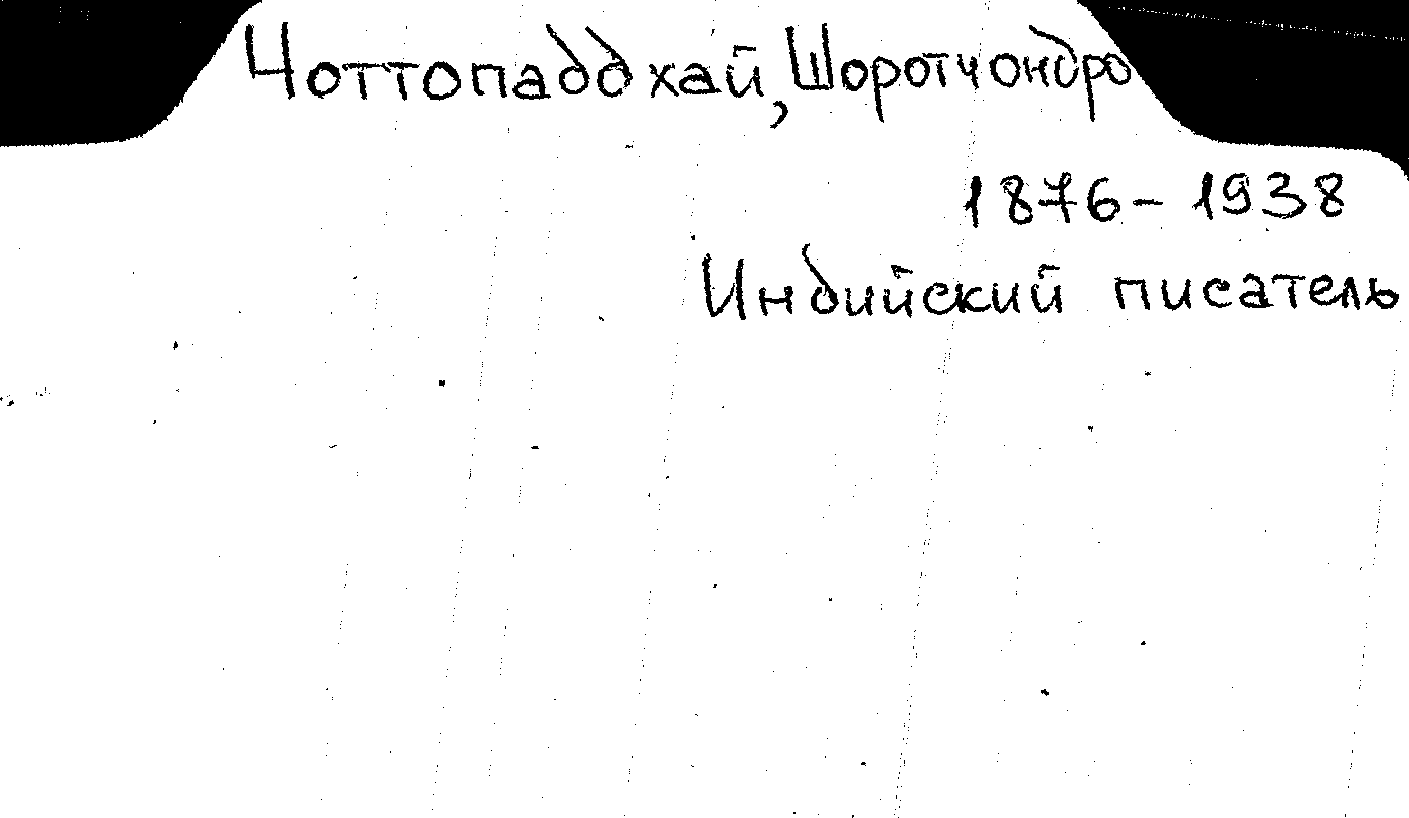 Чоттопаддхай, Шоротчондро
1876 – 1938
Индийский писатель